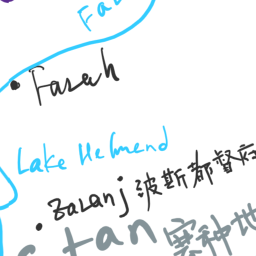 Fa
Farah
Lake Helmend
Zaranj 波斯都督府
stan 塞种地